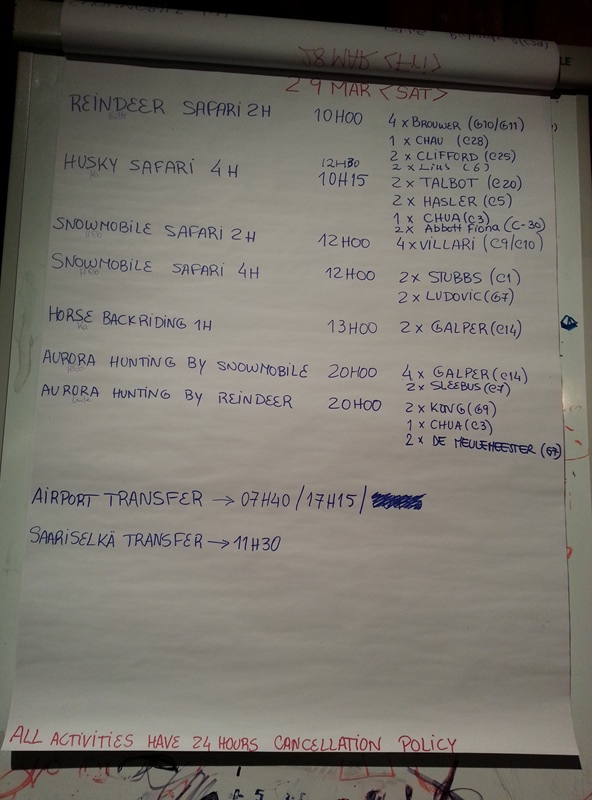 29 MAR <SAT>
REINDEER SAFARI 2H 10H00 4 x BROUWER (G10/G11)
1 x CHAU (C28)
2 x CLIFFORD (C25)
HUSKY SAFARI 4H 12H30 2 x Lius (6)
10H15 2 x TALBOT (C20)
2 x HASLER (C5)
1 x CHUA (C3)
2x Abbott Fiona (C-30)
SNOWMOBILE SAFARI 2H 12H00 4 x VILLARI (C9/C10)
SNOWMOBILE SAFARI 4H 12H00 2x STUBBS (C1)
2 x LUDOVIC (G7)
HORSE BACKRIDING 1H 13H00 2 x GALPER (C14)
AURORA HUNTING BY SNOWMOBILE 20H00 4 x GALPER (C14)
2x SLEEBUS (C7)
AURORA HUNTING BY REINDEER 20H00 2 x KONG (G9)
1 x CHUA (C3)
2 x DE MEULEMEESTER (G7)
AIRPORT TRANSFER → 07H40 / 17H15 /
SAARISELKÄ TRANSFER → 11H30
ALL ACTIVITIES HAVE 24 HOURS CANCELLATION POLICY